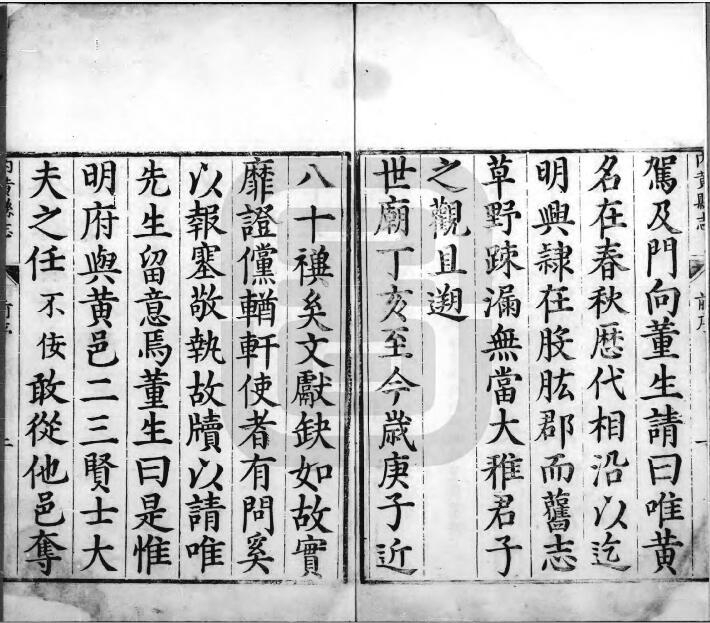 駕及門向董生請曰唯黃
名在春秋歴代相沿以迄
明興隷在股肱郡而舊志
草野踈漏無當大雅君子
之觀且遡
世廟丁亥至今歳庚子近
八十禩矣文獻缺如故實
靡證儻輶軒使者有問奚
以報塞敬執故牘以請唯
先生留意焉董生曰是惟
明府與黃邑二三賢士大
夫之任不佞敢從他邑奪
內黃縣志
前序